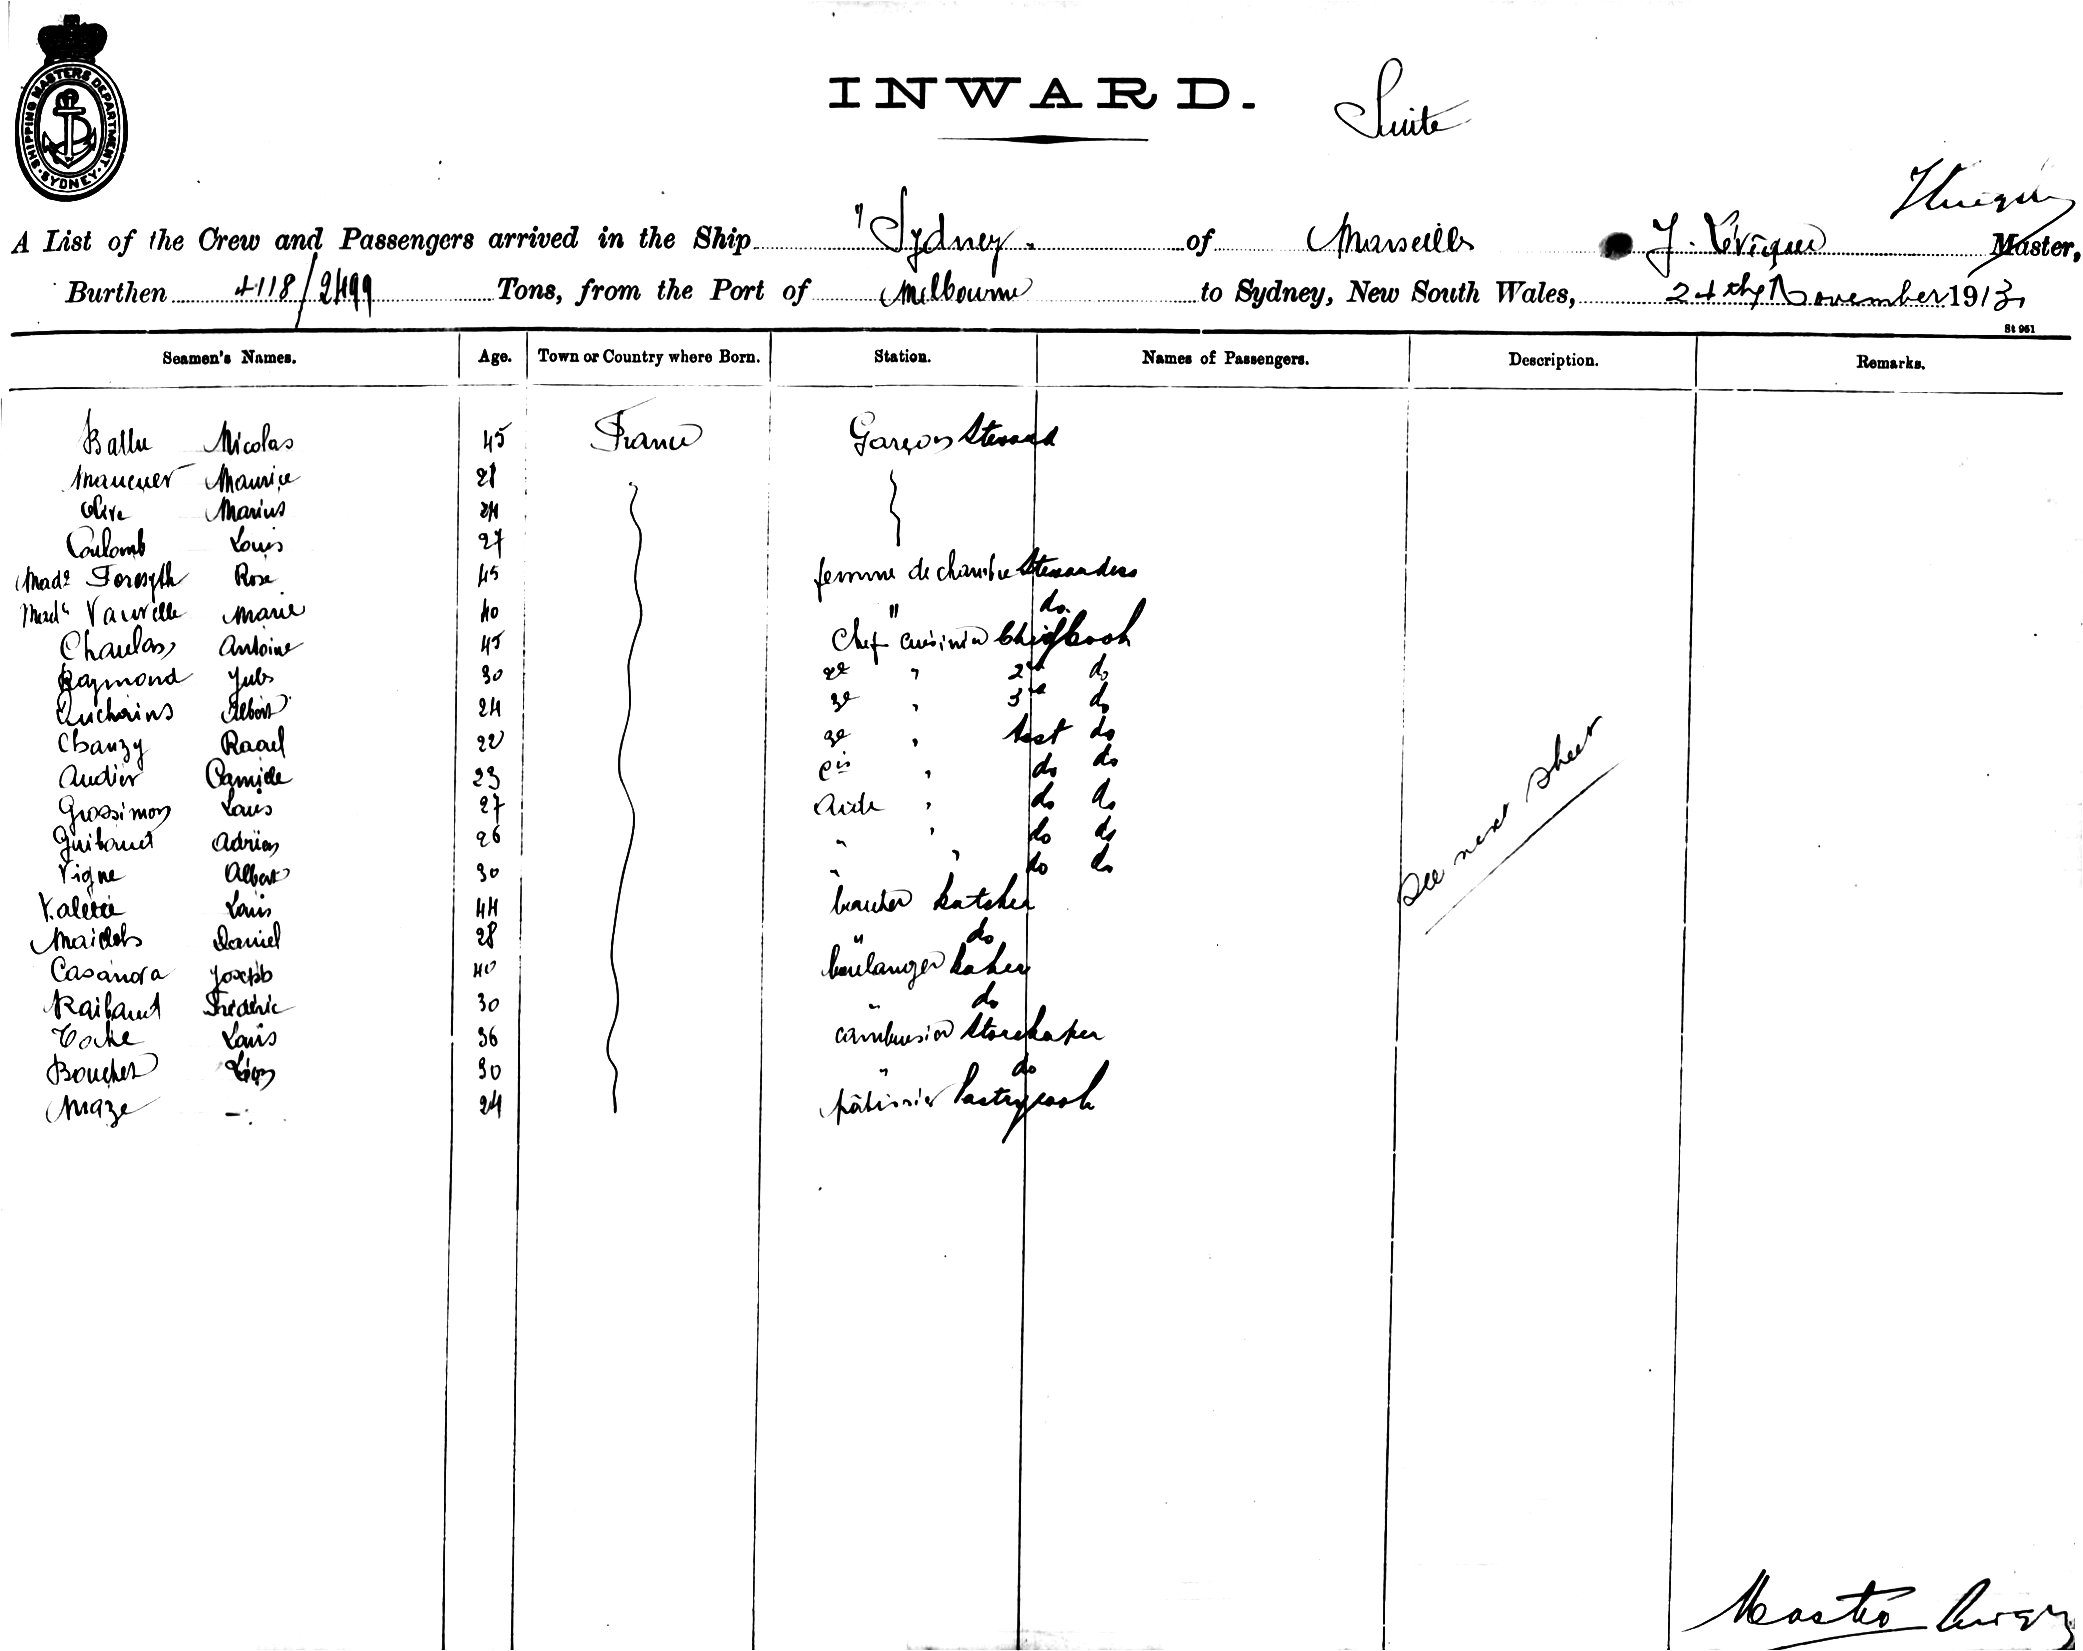 SHIPPING MASTERS DEPARTMENT. SYDNEY.
INWARD.
Suite
A List of the Crew and Passengers arrived in the Ship "Sydney" of Marseilles J. Lévique Master,
Burthen 4118/2499 Tons, from the Port of Melbourne to Sydney, New South Wales, 24th November 1913
St 961
Seamen's Names. Age. Town or Country where Born. Station. Names of Passengers. Description. Remarks.
Ballu Nicolas 45 France Garçon Steward
Maurice 28
Olive Marius 24
Coulomb Louis 27
Made Forsyth Rose 45 femme de chambre Stewardess
Made Marie 40 " do.
Antoine 45 Chef cuisinier Chief Cook
Raymond Jules 30 2e " 2nd do
Albert 24 3e " 3rd do
Chanzy Raoul 22 3e " Asst do
Audier Camille 23 " do do
Grossimon Louis 27 Aide " do do
Guibaud Adrien 26 " " do do
Vigne Albert 30 " " do do
Louis 44 boucher butcher
Daniel 28 " do
Casanova Joseph 40 boulanger baker
Raibaud Frédéric 30 " do
Louis 36 cambusier Storekeeper
Bouchet Léon 30 " do
Maze -. 24 pâtissier Pastrycook
See next sheet